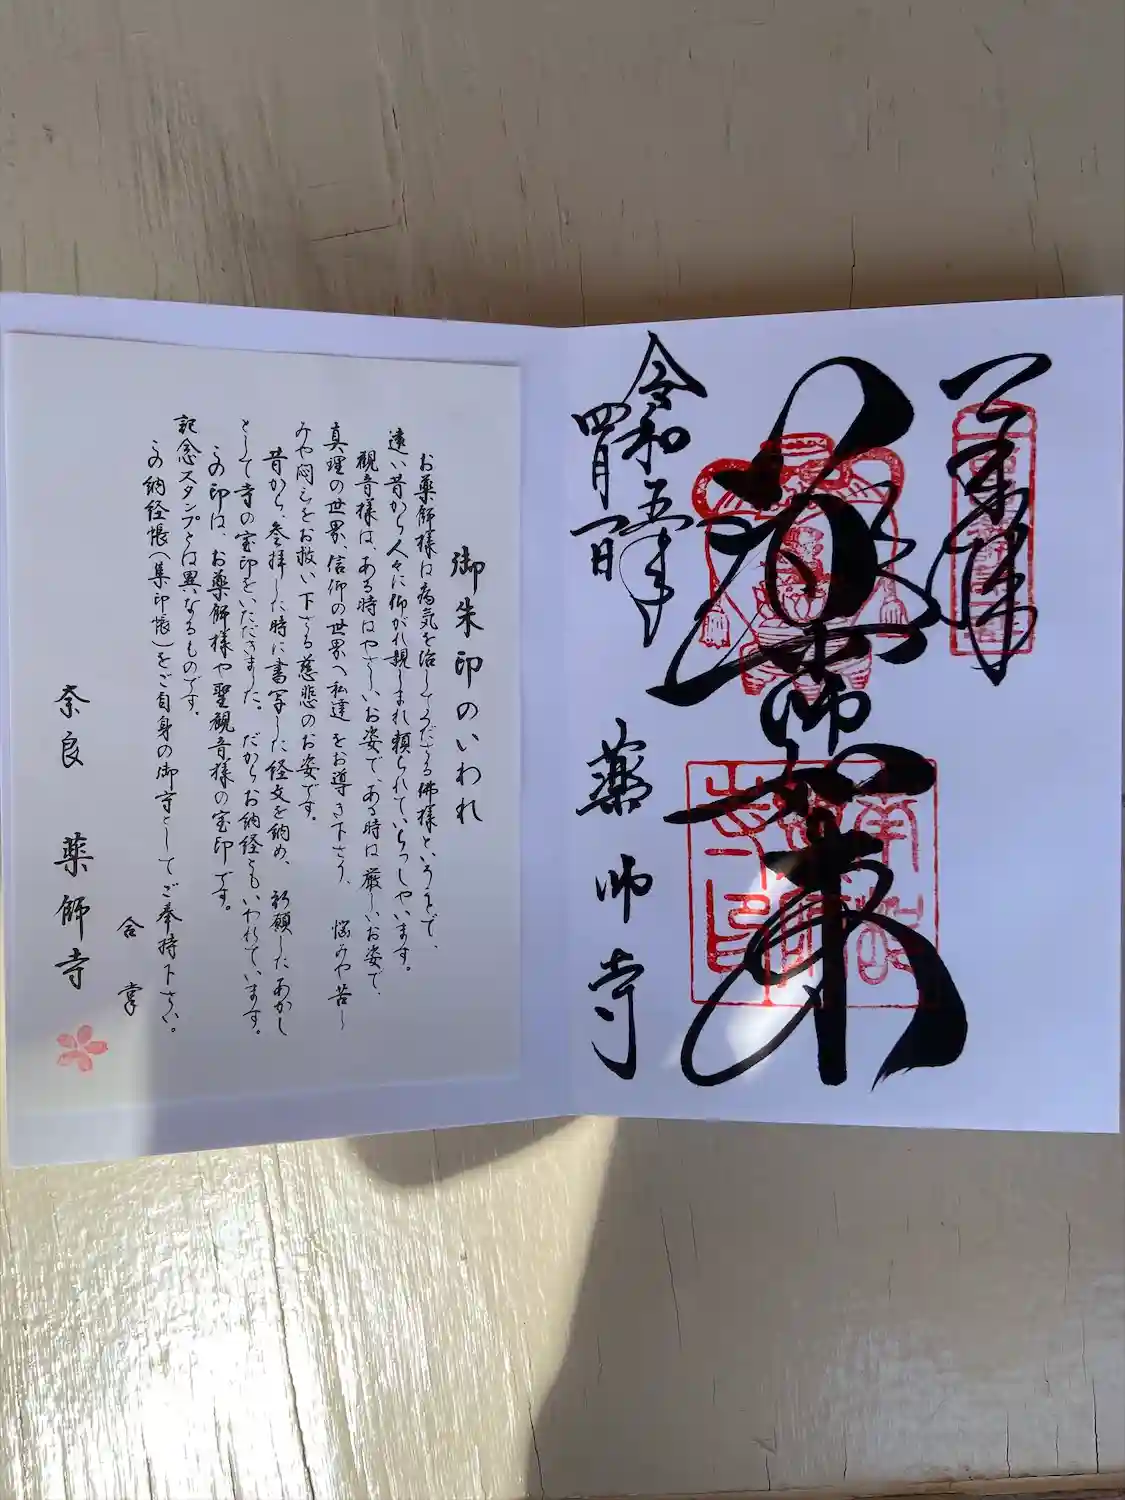 奉拝
薬師如来
令和五年
四月一日
薬師寺
御朱印のいわれ
お薬師様は病気を治してくださる佛様というまで、
遠い昔から人々に仰がれ親しまれ頼られていらっしゃいます。
観音様は、ある時はやさしいお姿で、ある時は厳しいお姿で、
真理の世界、信仰の世界へ私達をお導き下さり、悩みや苦し
みや悶をお救い下さる慈悲のお姿です。
昔から、参拝した時に書写した経文を納め、祈願したあかし
として寺の宝印をいただきました。だからお納経ともいわれています。
この印は、お薬師様や聖観音様の宝印です。
記念スタンプとは異なるものです。
この納経帳(集印帳)をご自身の御守としてご奉持下さい。
合掌
奈良 薬師寺